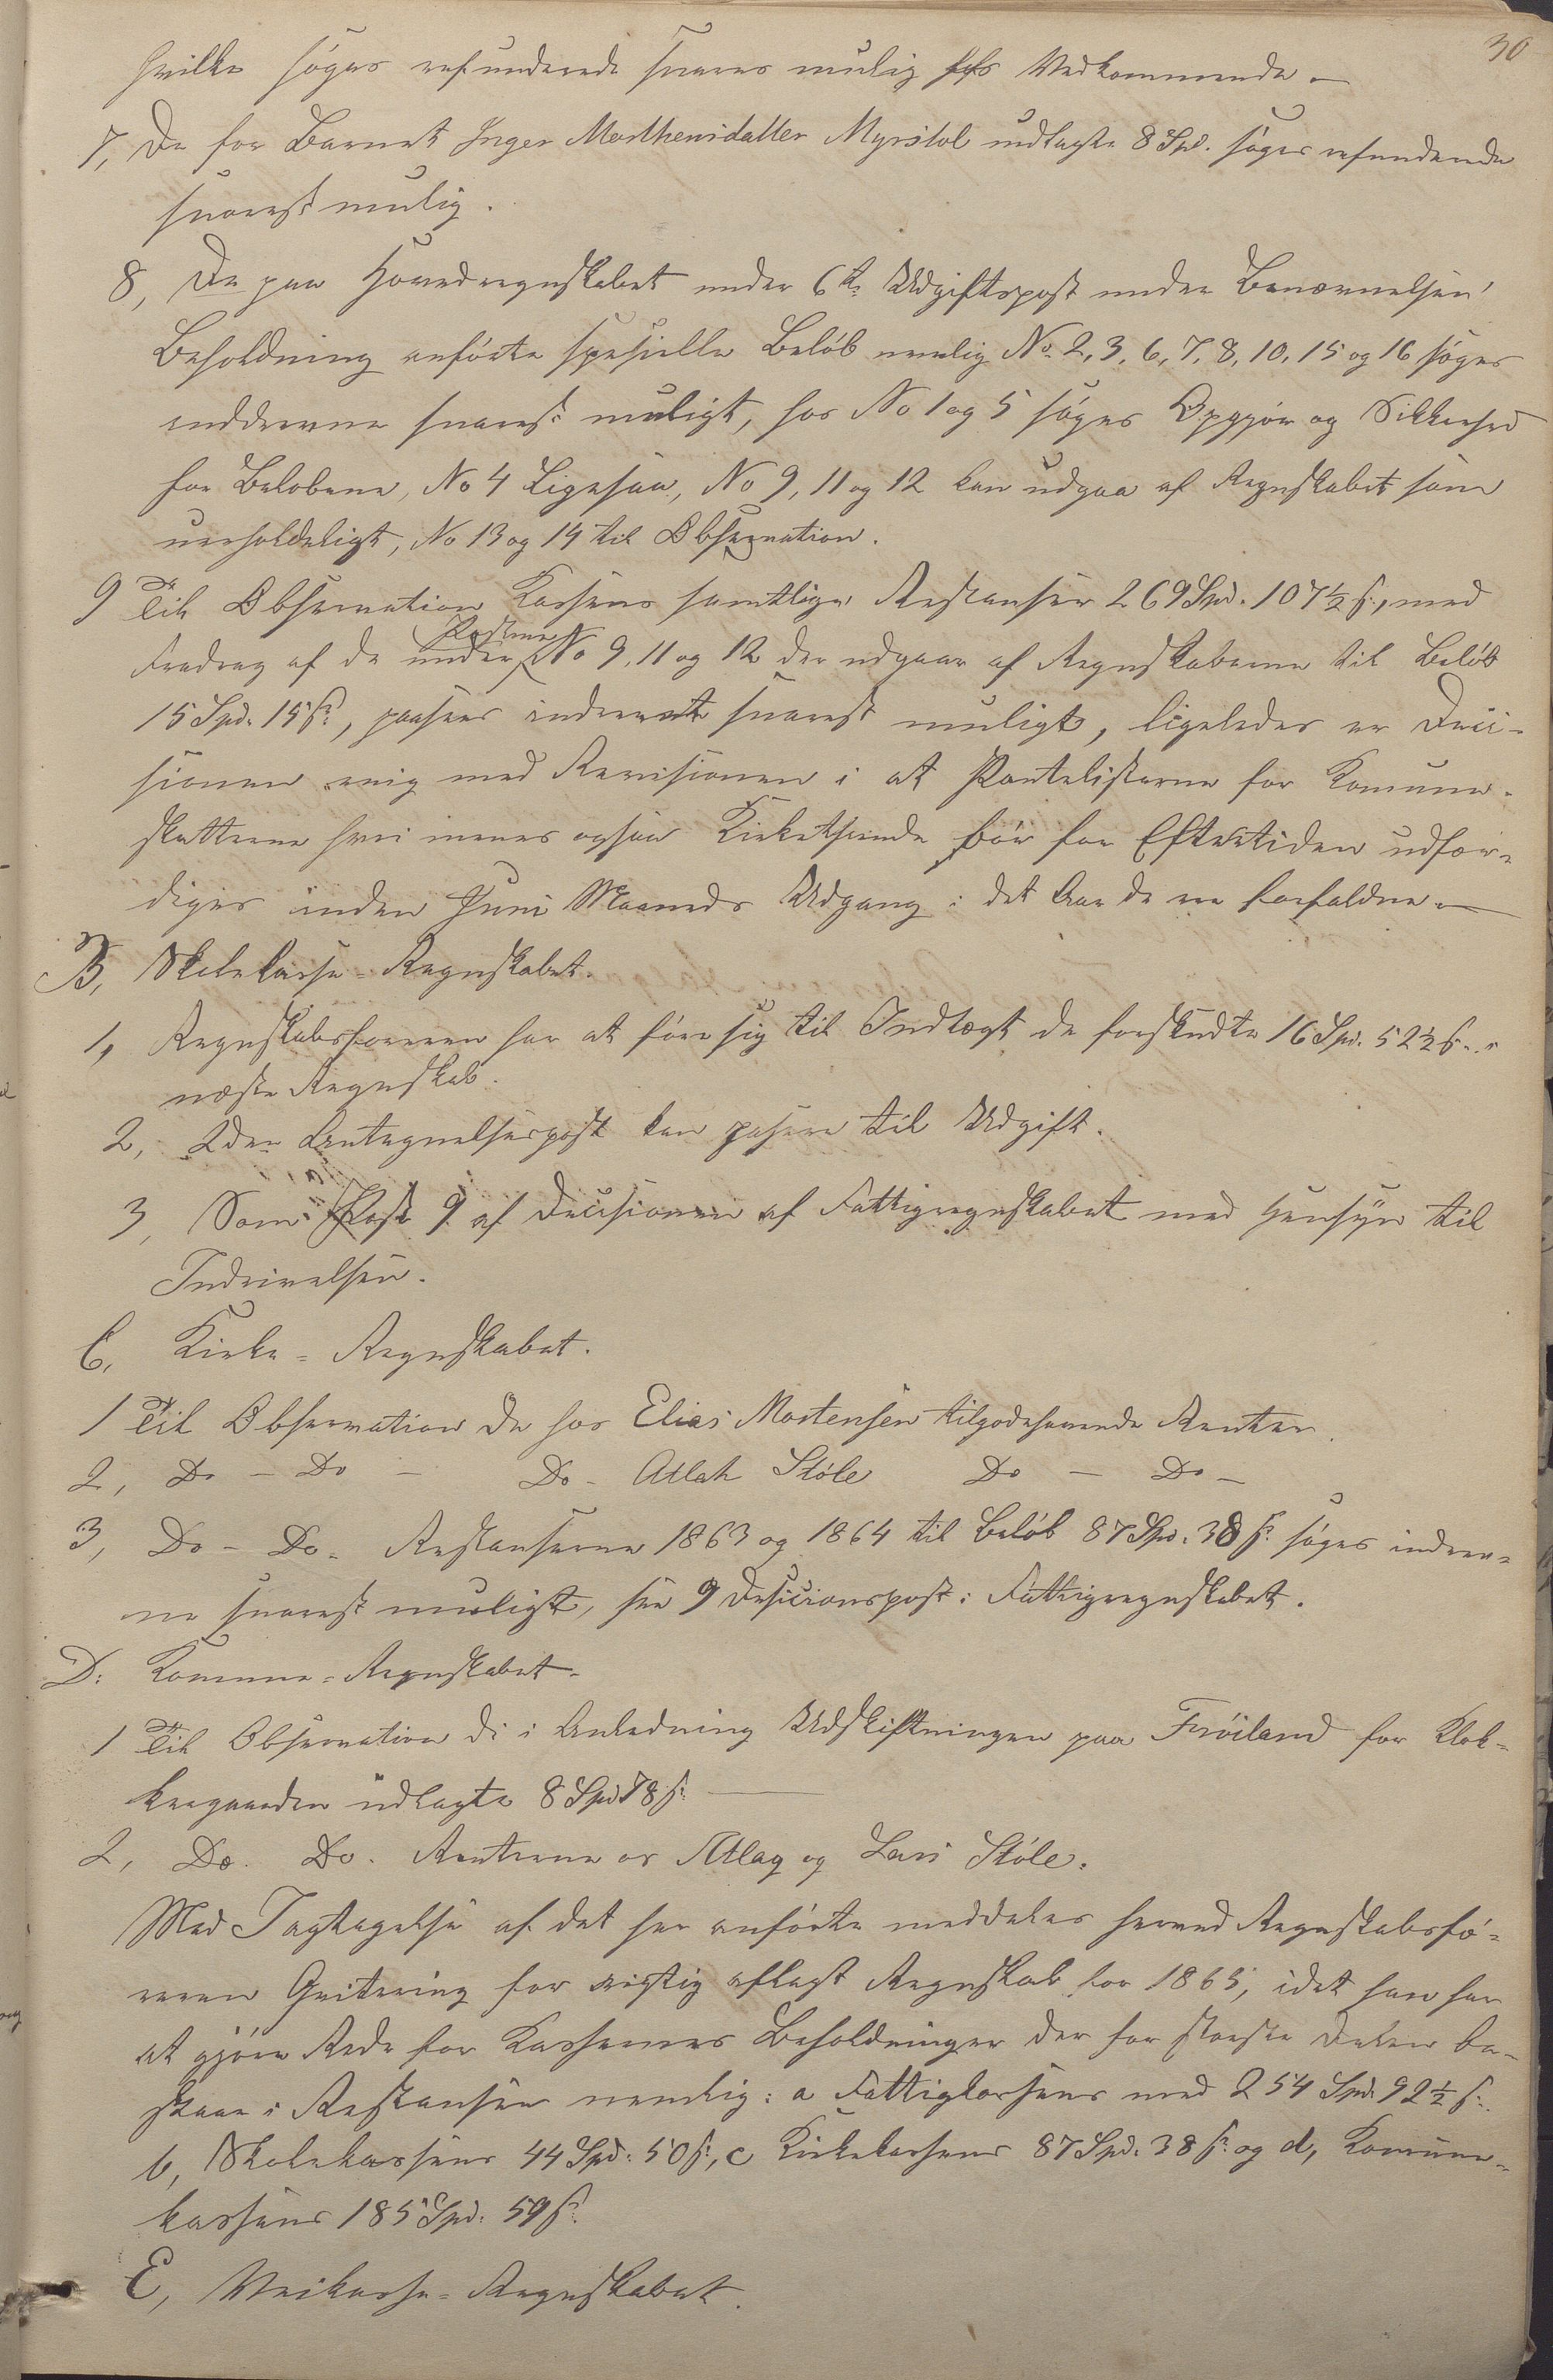 30
hvilke søges refunderede snares mulig hos Vedkommende. —
7, De for Barnet Inger Marthensdatter Myrstol udlagte 8 Spd. søges refunderede
snarest mulig.
8, De paa Hovedregnskabet under 6te Udgiftspost under Benævnelsen
Beholdning anførte spesielle Beløb nemlig No. 2, 3, 6, 7, 8, 10, 15 og 16 søges
inddrevne snarest muligt, hos No 1 og 5 søges Opgjør og Sikkerhed
for Beløbene, No 4 Ligesaa, No 9, 11 og 12 kan udgaa af Regnskabet som
uerholdeligt, No 13 og 14 til Observation.
9 Til Observation Kassens samtlige Restanser 269 Spd. 107½ s., med
Fradrag af de under Posterne No 9, 11 og 12 der udgaar af Regnskaberne til Beløb
15 Spd. 15 s., paasees inddrevet snarest muligt, ligeledes er Deci-
sionen enig med Revisionen i at Pantelisterne for Komune-
skatterne hvori menes ogsaa Kirketiende bør for Eftertiden udfær-
diges inden Juni Maaneds Udgang i det Aar de ere forfaldne. —
B, Skolekasse-Regnskabet.
1, Regnskabsføreren har at føre sig til Indtægt de forskudte 16 Spd. 52½ s. i
næste Regnskab.
2, 2den Antegnelsespost kan passere til Udgift.
3, Som Post 9 af Decisionen af Fattigregnskabet med Hensyn til
Inddrivelsen.
C, Kirke-Regnskabet.
1 Til Observation de hos Elias Mortensen tilgodehavende Renter.
2, Do – Do – Do – Atlak Støle Do – Do –
3, Do – Do. Restanserne 1863 og 1864 til Beløb 87 Spd. 38 s. søges inddrev-
ne snarest muligt, see 9 Desicionspost i Fattigregnskabet.
D. Komune-Regnskabet.
1 Til Observation de i Anledning Udskiftningen paa Frøiland for Klok-
kergaarden udlagte 8 Spd 78 s. —
2, Do. Do. Renterne os Atlag og Lars Støle.
Med Iagttagelse af det her anførte meddeles herved Regnskabsfø-
reren Qvitering for rigtig aflagt Regnskab for 1865, idet han har
at gjøre Rede for Kassernes Beholdninger der for største Delen be-
staar i Restanser nemlig: a Fattigkassens med 254 Spd. 92½ s.
b, Skolekassens 44 Spd. 50 s., c Kirkekassens 87 Spd. 38 s. og d, Komune-
kassens 185 Spd. 59 s.
E, Veikasse-Regnskabet.